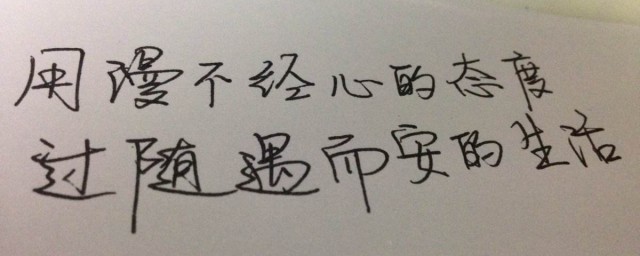 用漫不经心的态度
过随遇而安的生活